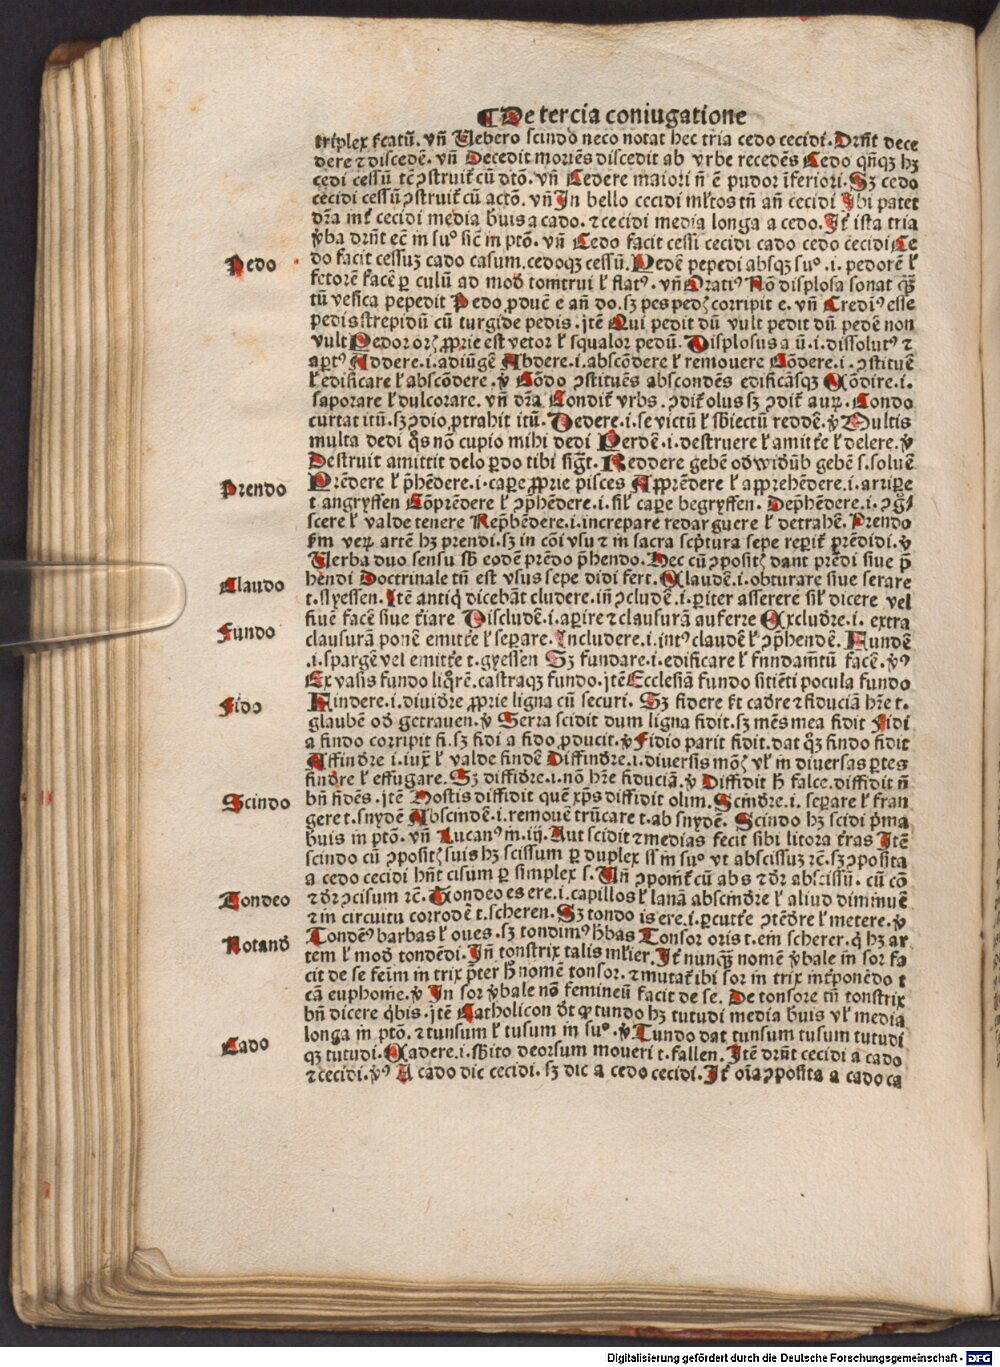 ¶De tercia coniugatione
triplex ſcatū. vñ Uerbero ſcindo neco notat hec tria cedo cecidi. Drn̄t dece
dere ⁊ diſcedē. vñ Decedit moriēs diſcedit ab vrbe recedēs Cedo qn̄qꝫ hꝫ
cedi ceſſū tc̄ ꝯſtruit͛ cū dtō. vñ Cedere maiori n̄ ē pudor īferiori. Sꝫ cedo
cecidi ceſſū ꝯſtruit͛ cū actō. vñ In bello cecidi ml̓tos tn̄ an̄ cecidi Ibi patet
dr̄a int͛ cecidi media b̓uis a cado. ⁊ cecidi media longa a cedo. It͛ iſta tria
v̓ba drn̄t ec̄ in ſuº ſic̄ in ptō. vñ Cedo facit ceſſi cecidi cado cedo cecidi Ce
Pedo
do facit ceſſuꝫ cado caſum. cedoqꝫ ceſſū. Pedē pepedi abſqꝫ ſuº .i. pedorē l̓
fetorē facē ꝑ culū ad mod̄ tomtrui l̓ flatꝰ. vñ Oratiꝰ Nō diſploſa ſonat qꝫ̄
tū veſica pepedit Pedo ꝓduc̄ e an̄ do. ſꝫ pes pedꝫ corripit e. vñ Credimꝰ eſſe
pedis ſtrepidū cū turgide pedis. jtē Qui pedit dū vult pedit dū pedē non
vult Pedor orꝫ ꝓprie eſt vetor l̓ ſqualor pedū. Diſploſus a ū .i. diſſolutꝰ ⁊
aꝑtꝰ Addere .i. adiūgē Abdere .i. abſcōdere l̓ remouere Cōdere .i. ꝯſtituē
l̓ edificare l̓ abſcōdere. v̓ Cōdo ꝯſtituēs abſcondēs edificāſqꝫ Cōdire .i.
ſaporare l̓ dulcorare. vñ dr̄a Condit͛ vrbs. ꝯdit͛ olus ſꝫ ꝯdit͛ auꝝ. Condo
curtat itū. ſꝫ ꝯdio ꝓtrahit itū. Dedere .i. ſe victū l̓ ſb̓iectū reddē. v̓ Multis
multa dedi q̄s nō cupio mihi dedi Perdē .i. deſtruere l̓ amitt͛e l̓ delere. v̓
Deſtruit amittit delo ꝑdo tibi ſig̓t. Reddere gebē od̓ wid̓ūb gebē ſ. ſoluē
Prendo
Prēdere l̓ p̄hēdere .i. caꝑe ꝓprie piſces Apprēdere l̓ apprehēdere .i. arriꝑe
t angryffen Cōprēdere l̓ ꝯp̄hēdere .i. ſil̓ caꝑe begryffen. Dep̄hēdere .i. ꝯg̓ſ
ſcere l̓ valde tenere Rep̄hēdere .i. increpare redarguere l̓ detrahē. Prendo
ẜm veꝝ artē hꝫ prendi. ſꝫ in cōi vſu ⁊ in ſacra ſcp̓tura ſepe reꝑit͛ prēdidi. v̓
Uerba duo ſenſu ſb̓ eodē prēdo p̄hendo. Hec cū ꝯpoſitꝫ dant prēdi ſiue p̄
Claudo
hendi Doctrinale tn̄ eſt vſus ſepe didi fert. Claudē .i. obturare ſiue ſerare
t. ſlyeſſen. Itē antiq̓ dicebāt cludere. in̄ ꝯcludē .i. ꝑiter aſſerere ſil̓ dicere vel
Fundo
finē facē ſiue t͛iare Diſcludē .i. aꝑire ⁊ clauſurā auferre Excludr̄e .i. extra
clauſurā ponē emitt͛e l̓ ſeꝑare. Includere .i. intꝰ claudē l̓ ꝯp̄hendē. Fundē
.i. ſpargē vel emitt͛e t. gyeſſen Sꝫ fundare .i. edificare l̓ fundam̄tū facē. v̓ꝰ
Ex vaſis fundo liq̓rē. caſtraqꝫ fundo. jtē Eccleſiā fundo ſitiēti pocula fundo
Fido
Findere .i. diuidr̄e ꝓprie ligna cū ſecuri. Sꝫ fidere ẜt cadr̄e ⁊ fiduciā hr̄e t.
glaubē od̓ getrauen. v̓ Serra ſcidit dum ligna fidit. ſꝫ mēs mea fidit Fidi
a findo corripit fi. ſꝫ fidi a fido ꝓducit. v̓ Fidio parit fidit. dat q̊ꝫ findo fidit
Affindr̄e .i. iuxͣ l̓ valde findē Diffindr̄e .i. diuerſis mōꝫ vl̓ in diuerſas ꝑtes
findr̄e l̓ effugare. Sꝫ diffidr̄e .i. nō hr̄e fiduciā. v̓ Diffidit h̓ falce. diffidit n̄
Scindo
bn̄ fidēs. jtē Hoſtis diffidit quē xp̄s diffidit olim. Scindr̄e .i. ſeꝑare l̓ fran
gere t. ſnydē Abſcindē .i. remouē trūcare t. ab ſnydē. Scindo hꝫ ſcidi p̓ma
b̓uis in ptō. vñ Lucanꝰ in .iij. Aut ſcidit ⁊ medias fecit ſibi litora t͛ras Itē
ſcindo cū ꝯpoſitꝫ ſuis hꝫ ſciſſum ꝑ duplex ſſ in ſuº vt abſciſſuꝫ ⁊c. ſꝫ ꝯpoſita
a cedo cecidi hn̄t ciſum ꝑ ſimplex ſ. Un̄ ꝯponit͛ cū abs ⁊ dr̄ abſciſſū. cū cō
Tondeo
⁊ dr̄ ꝯciſum ⁊c. Tondeo es ere .i. capillos l̓ lanā abſcindr̄e l̓ aliud diminuē
⁊ in circuitu corrodē t. ſcheren. Sꝫ tondo is ere .i. ꝑcutt͛e ꝯtēdr̄e l̓ metere. v̓
Notand̄
Tondēꝰ barbas l̓ oues. ſꝫ tondimꝰ h̓bas Tonſor oris t. ein ſcherer. q̓ hꝫ ar
tem l̓ mod̄ tondēdi. In̄ tonſtrix talis ml̓ier. It͛ nunqꝫ̄ nomē v̓bale in ſor fa
cit de ſe feīm in trix p̄ter h̓ nomē tonſor. ⁊ mutat͛ ibi ſor in trix int͛ponēdo t
cā euphonie. v̓ In ſor v̓bale nō femineū facit de ſe. De tonſore tn̄ tonſtrix
bn̄ dicere q̓bis. jtē Catholicon dr̄t ꝙ tundo hꝫ tutudi media b̓uis vl̓ media
longa in ptō. ⁊ tunſum l̓ tuſum in ſuº. v̓ Tundo dat tunſum tuſum tutudi
Cado
qꝫ tutudi. Cadere .i. ſb̓ito deorſum moueri t. fallen. Itē drn̄t cecidi a cado
⁊ cecidi. v̓ꝰ A cado dic cecidi. ſꝫ dic a cedo cecidi. It͛ oīa ꝯpoſita a cado ca
Digitalisierung gefördert durch die Deutsche Forschungsgemeinschaft - DFG